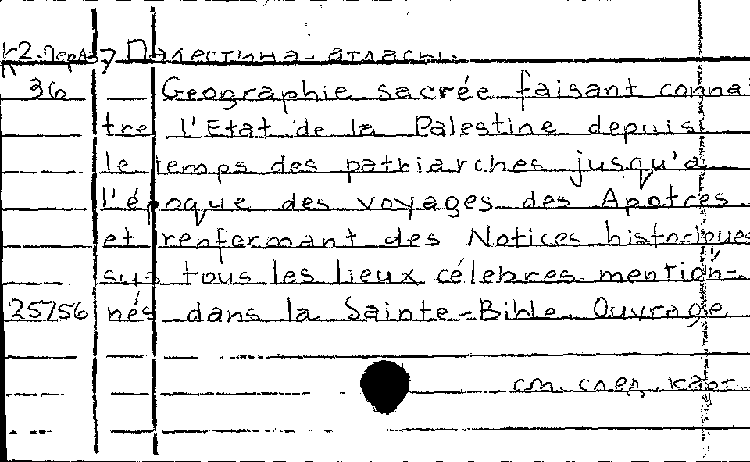 К2.Перв 7 Палестина - атласы.
36 Geographie sacrée faisant connaî
tre l'Etat de la Palestine depuis
le temps des patriarches jusqu'a
l'époque des voyages des Apotres
et renfermant des Notices historiques
sur tous les lieux célebres mention-
25756 nés dans la Sainte-Bible Ouvrage
см. след. карт.